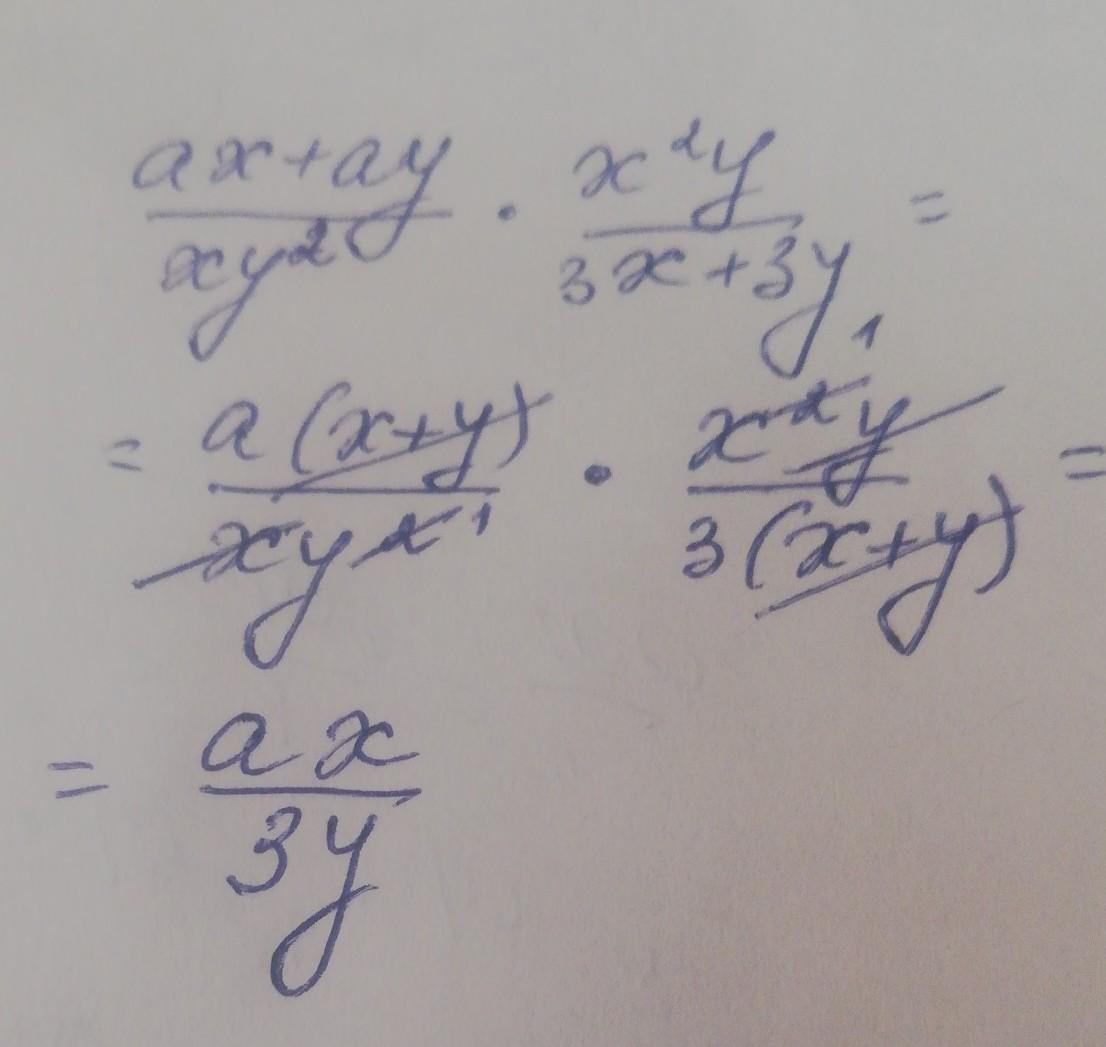 \frac{ax+ay}{xy^2} \cdot \frac{x^2y}{3x+3y} =
= \frac{a\cancel{(x+y)}}{\cancel{x}y^{\cancel{2}1}} \cdot \frac{x^{\cancel{2}1}\cancel{y}}{3\cancel{(x+y)}} =
= \frac{ax}{3y}